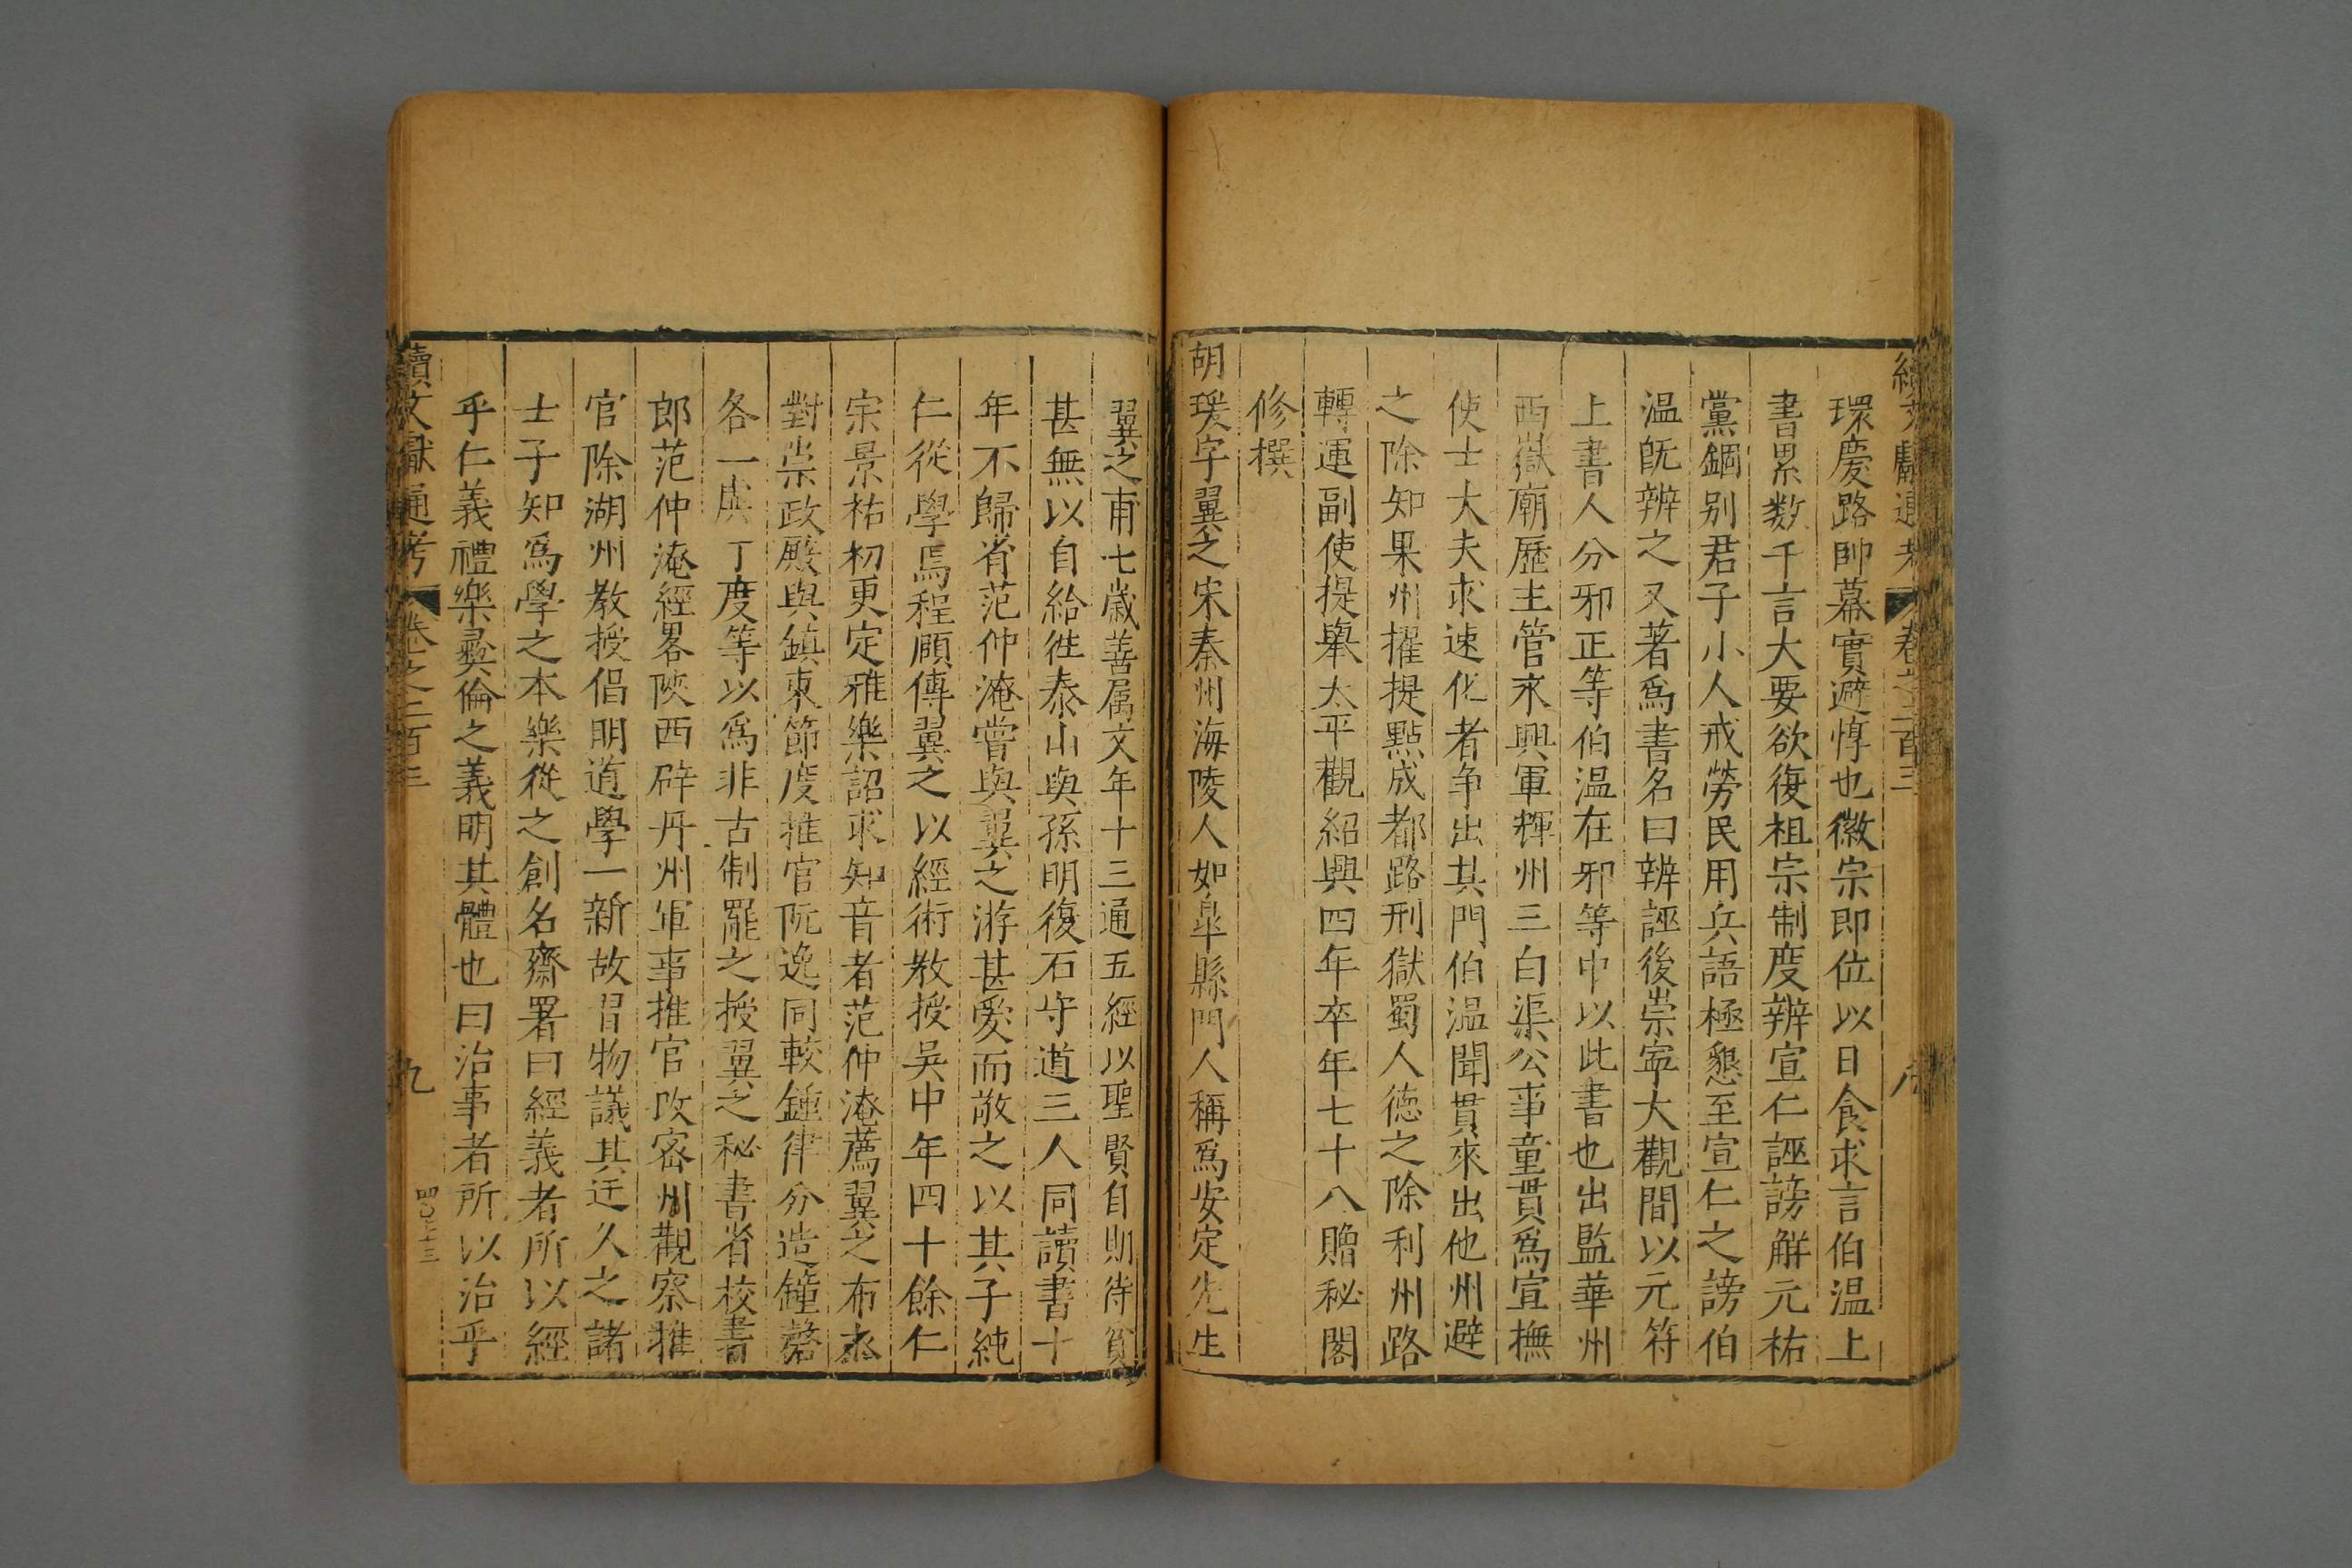 續文獻通考 卷之二百三 八
環慶路帥幕實避惇也徽宗即位以日食求言伯温上
書累数千言大要欲復祖宗制度辨宣仁誣謗解元祐
黨錮别君子小人戒勞民用兵語極懇至宣仁之謗伯
温既辨之又著爲書名曰辨誣後崇寜大觀間以元符
上書人分邪正等伯温在邪等中以此書也出監華州
西嶽廟歷主管永興軍輝州三白渠公事童貫爲宣撫
使士大夫求速化者争出其門伯温聞貫來出他州避
之除知果州擢提點成都路刑獄蜀人德之除利州路
轉運副使提舉太平觀紹興四年卒年七十八贈秘閣
修撰
胡瑗字翼之宋泰州海陵人如臯縣門人稱爲安定先生
翼之甫七歲善属文年十三通五經以聖賢自期待貧
甚無以自給徃泰山與孫明復石守道三人同讀書十
年不歸省范仲淹嘗與翼之游甚愛而敬之以其子純
仁從學焉程頤傳翼之以經術教授吴中年四十餘仁
宗景祐初更定雅樂詔求知音者范仲淹薦翼之布衣
對崇政殿與鎮東節度推官阮逸同較鍾律分造鐘磬
各一虡丁度等以爲非古制罷之授翼之秘書省校書
郎范仲淹經畧陜西辟丹州軍事推官改密州觀察推
官除湖州教授倡明道學一新故習物議其迂久之諸
士子知爲學之本樂從之創名齋署曰經義者所以經
乎仁義禮樂彛倫之義明其體也曰治事者所以治乎
續文獻通考 卷之二百三 九